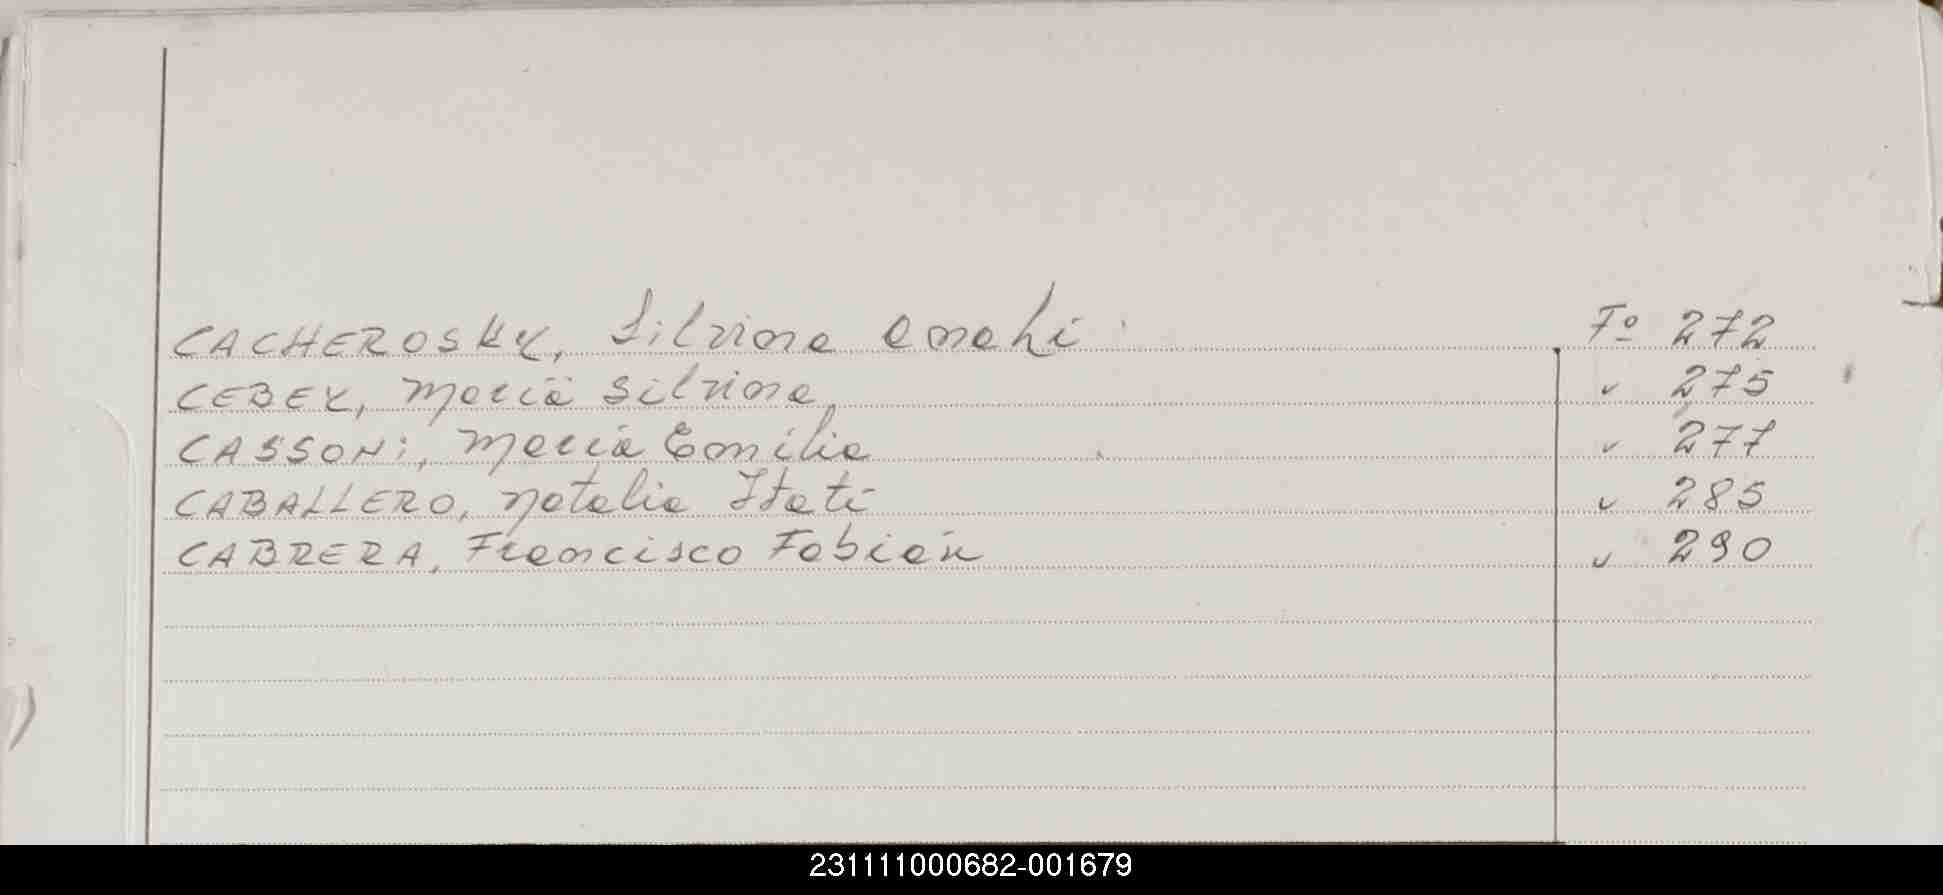 CACHEROSKY, Silvina Anahi Fº 272
CEBEY, María Silvina " 275
CASSONi, María Emilia " 277
CABALLERO, Natalia Itatí " 285
CABRERA, Francisco Fabián " 290
231111000682-001679